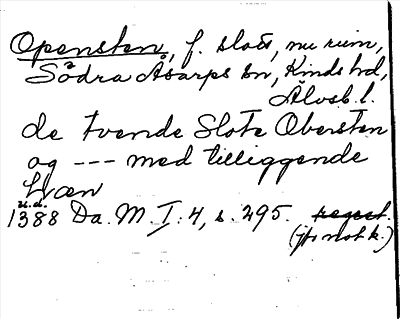 Opensten, f. slott, nu ruin,
Södra Åsarps sn, Kinds hd,
Älvsb. l.
de tvende Slote Obersten
og --- med tilliggende
Læn
u.d.
1388 Da. M. I: 4, s. 295. regest.
(jfr not k.)